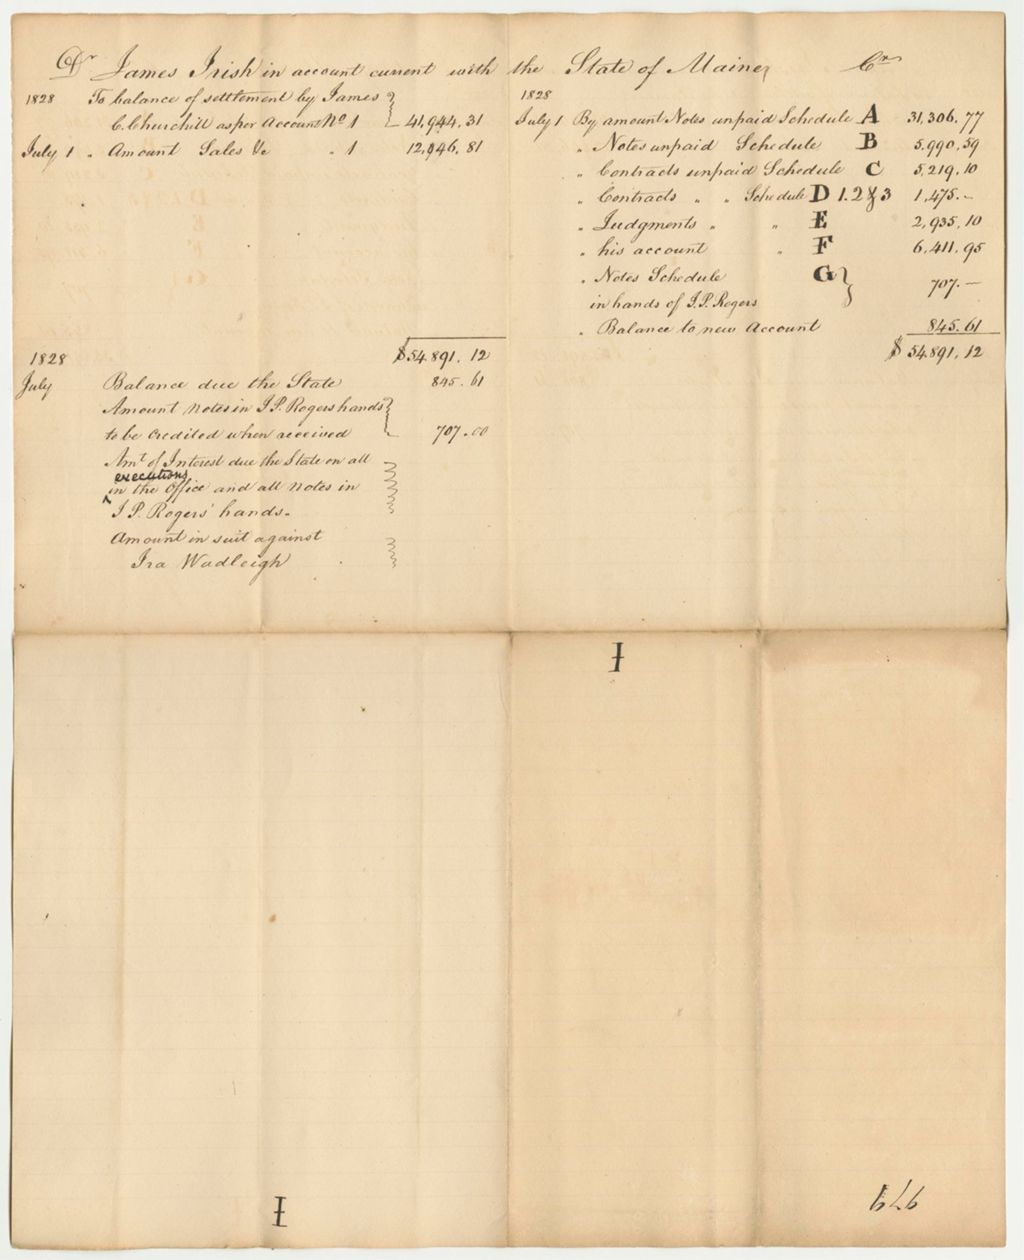 Dr James Irish in account current with the State of Maine Cr
1828 To balance of settlement by James
C. Churchill as per Account No 1 41,944.31
July 1 " Amount Sales &c " 1 12,946.81
1828
July 1 By amount Notes unpaid Schedule A 31,306.77
" Notes unpaid Schedule B 5,990.59
" Contracts unpaid Schedule C 5,219.10
" Contracts " " Schedule D 1.2 & 3 1,475.–
" Judgments " " E 2,935.10
" his account " F 6,411.95
" Notes Schedule G
in hands of J.P. Rogers 707.–
" Balance to new Account 845.61
$54.891.12
$54.891.12
1828
July Balance due the State 845.61
Amount Notes in J P. Rogers hands
to be credited when received 707.00
Amt of Interest due the State on all
executions
in the Office and all Notes in
J P. Rogers' hands.
Amount in suit against
Ira Wadleigh
I
I